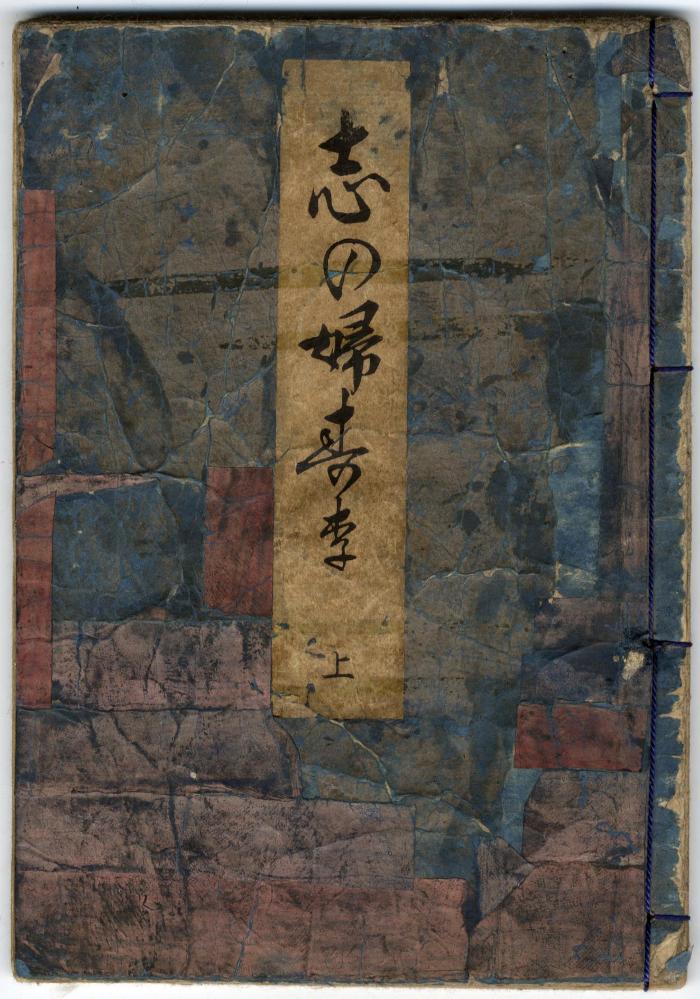 志の婦寿李
上